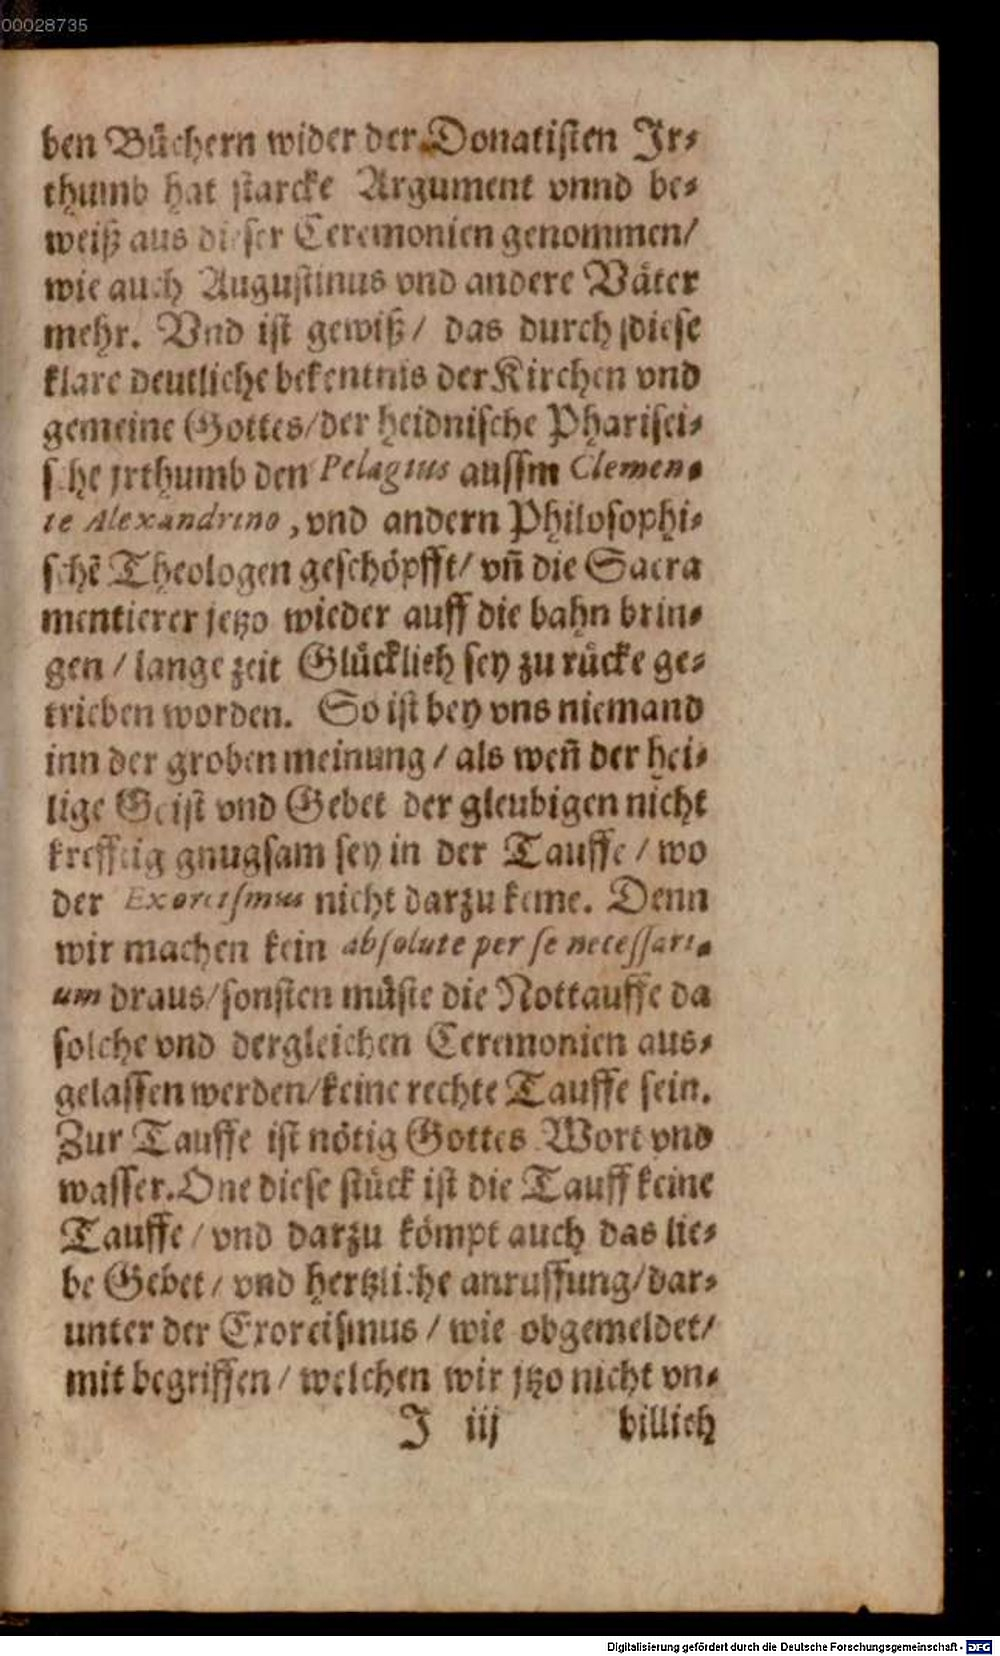 00028735
ben Bůchern wider der Donatisten Jr⸗
thumb hat starcke Argument vnnd be⸗
weiß aus dieser Ceremonien genommen/
wie auch Augustinus vnd andere Våter
mehr. Vnd ist gewiß/ das durch diese
klare deutliche bekentnis der Kirchen vnd
gemeine Gottes/der heidnische Pharisei⸗
sche jrthumb den Pelagius aussm Clemen⸗
te Alexandrino, vnd andern Philosophi⸗
schẽ Theologen geschöpfft/ vñ die Sacra
mentierer jetzo wieder auff die bahn brin⸗
gen/ lange zeit Glůcklich sey zu růcke ge⸗
trieben worden. So ist bey vns niemand
inn der groben meinung/ als weñ der hei⸗
lige Geist vnd Gebet der gleubigen nicht
krefftig gnugsam sey in der Tauffe/ wo
der Exorcismus nicht darzu keme. Denn
wir machen kein absolute per se necessari⸗
um draus/sonsten můste die Nottauffe da
solche vnd dergleichen Ceremonien aus⸗
gelassen werden/keine rechte Tauffe sein.
Zur Tauffe ist nötig Gottes Wort vnd
wasser. One diese stůck ist die Tauff keine
Tauffe/ vnd darzu kömpt auch das lie⸗
be Gebet/ vnd hertzliche anruffung/dar⸗
unter der Exorcismus/ wie obgemeldet/
mit begriffen/ welchen wir jtzo nicht vn⸗
J iij billich
Digitalisierung gefördert durch die Deutsche Forschungsgemeinschaft - DFG